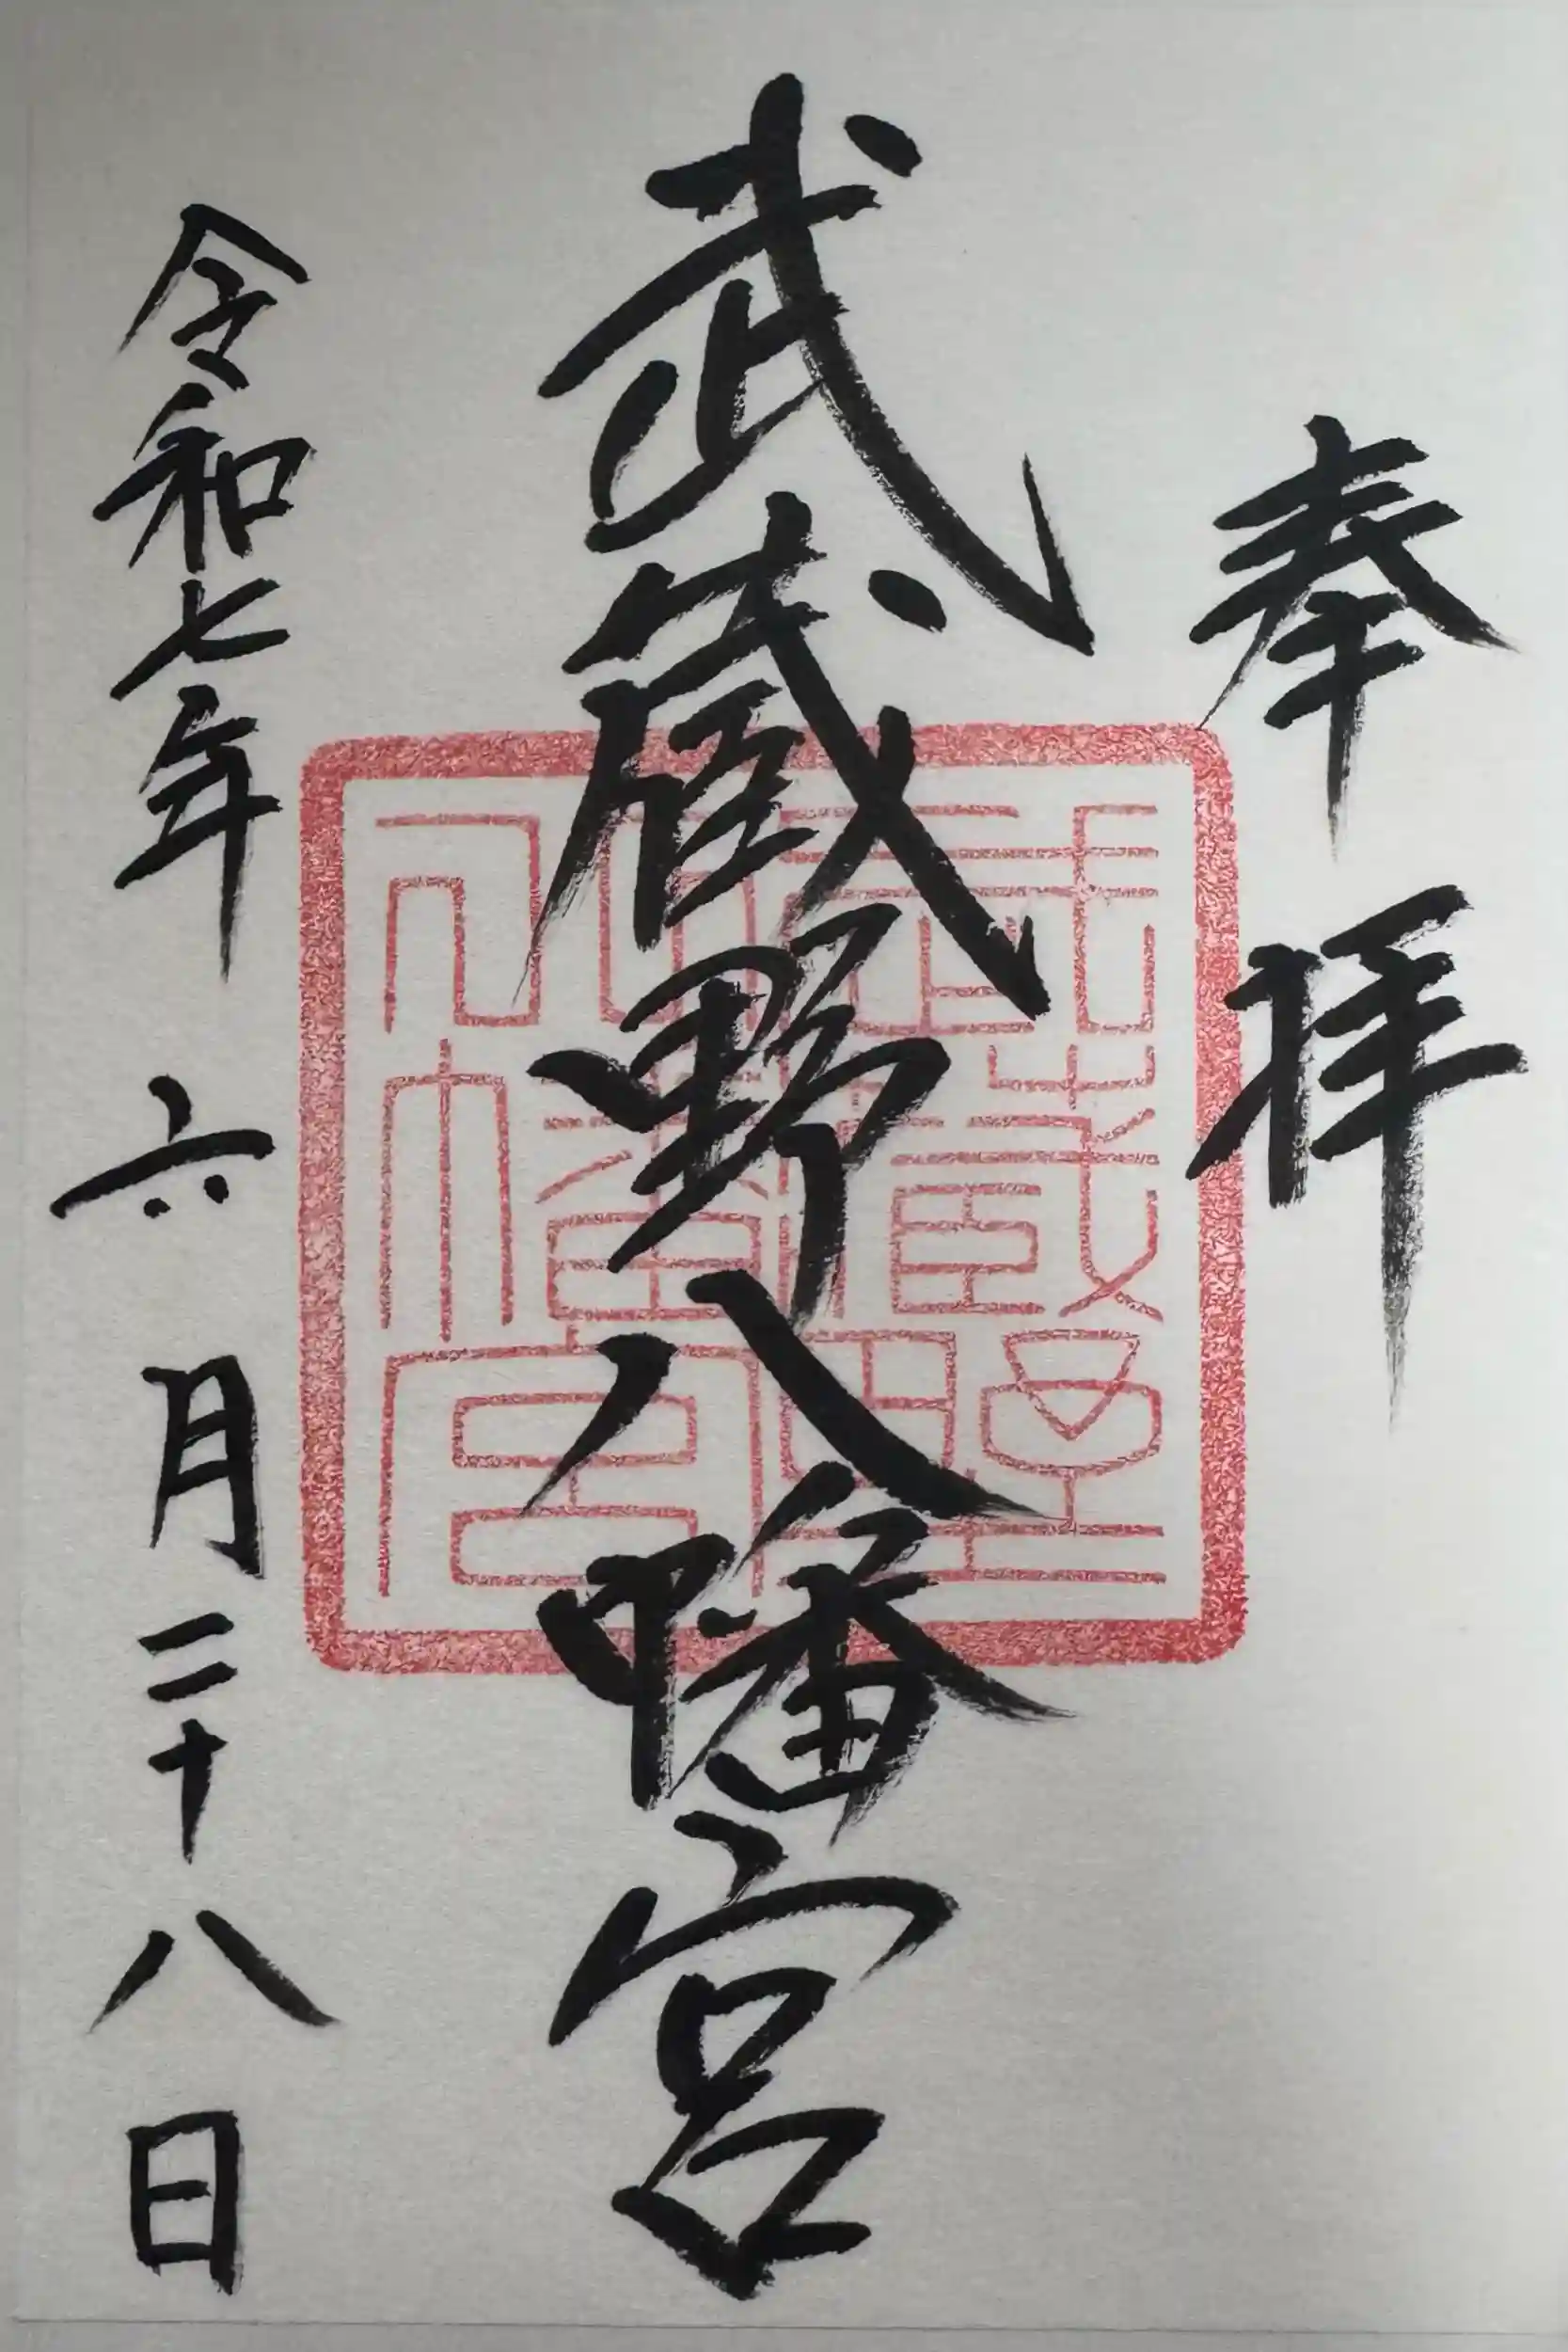 奉拝
武蔵野八幡宮
令和七年六月二十八日
武蔵野
八幡宮